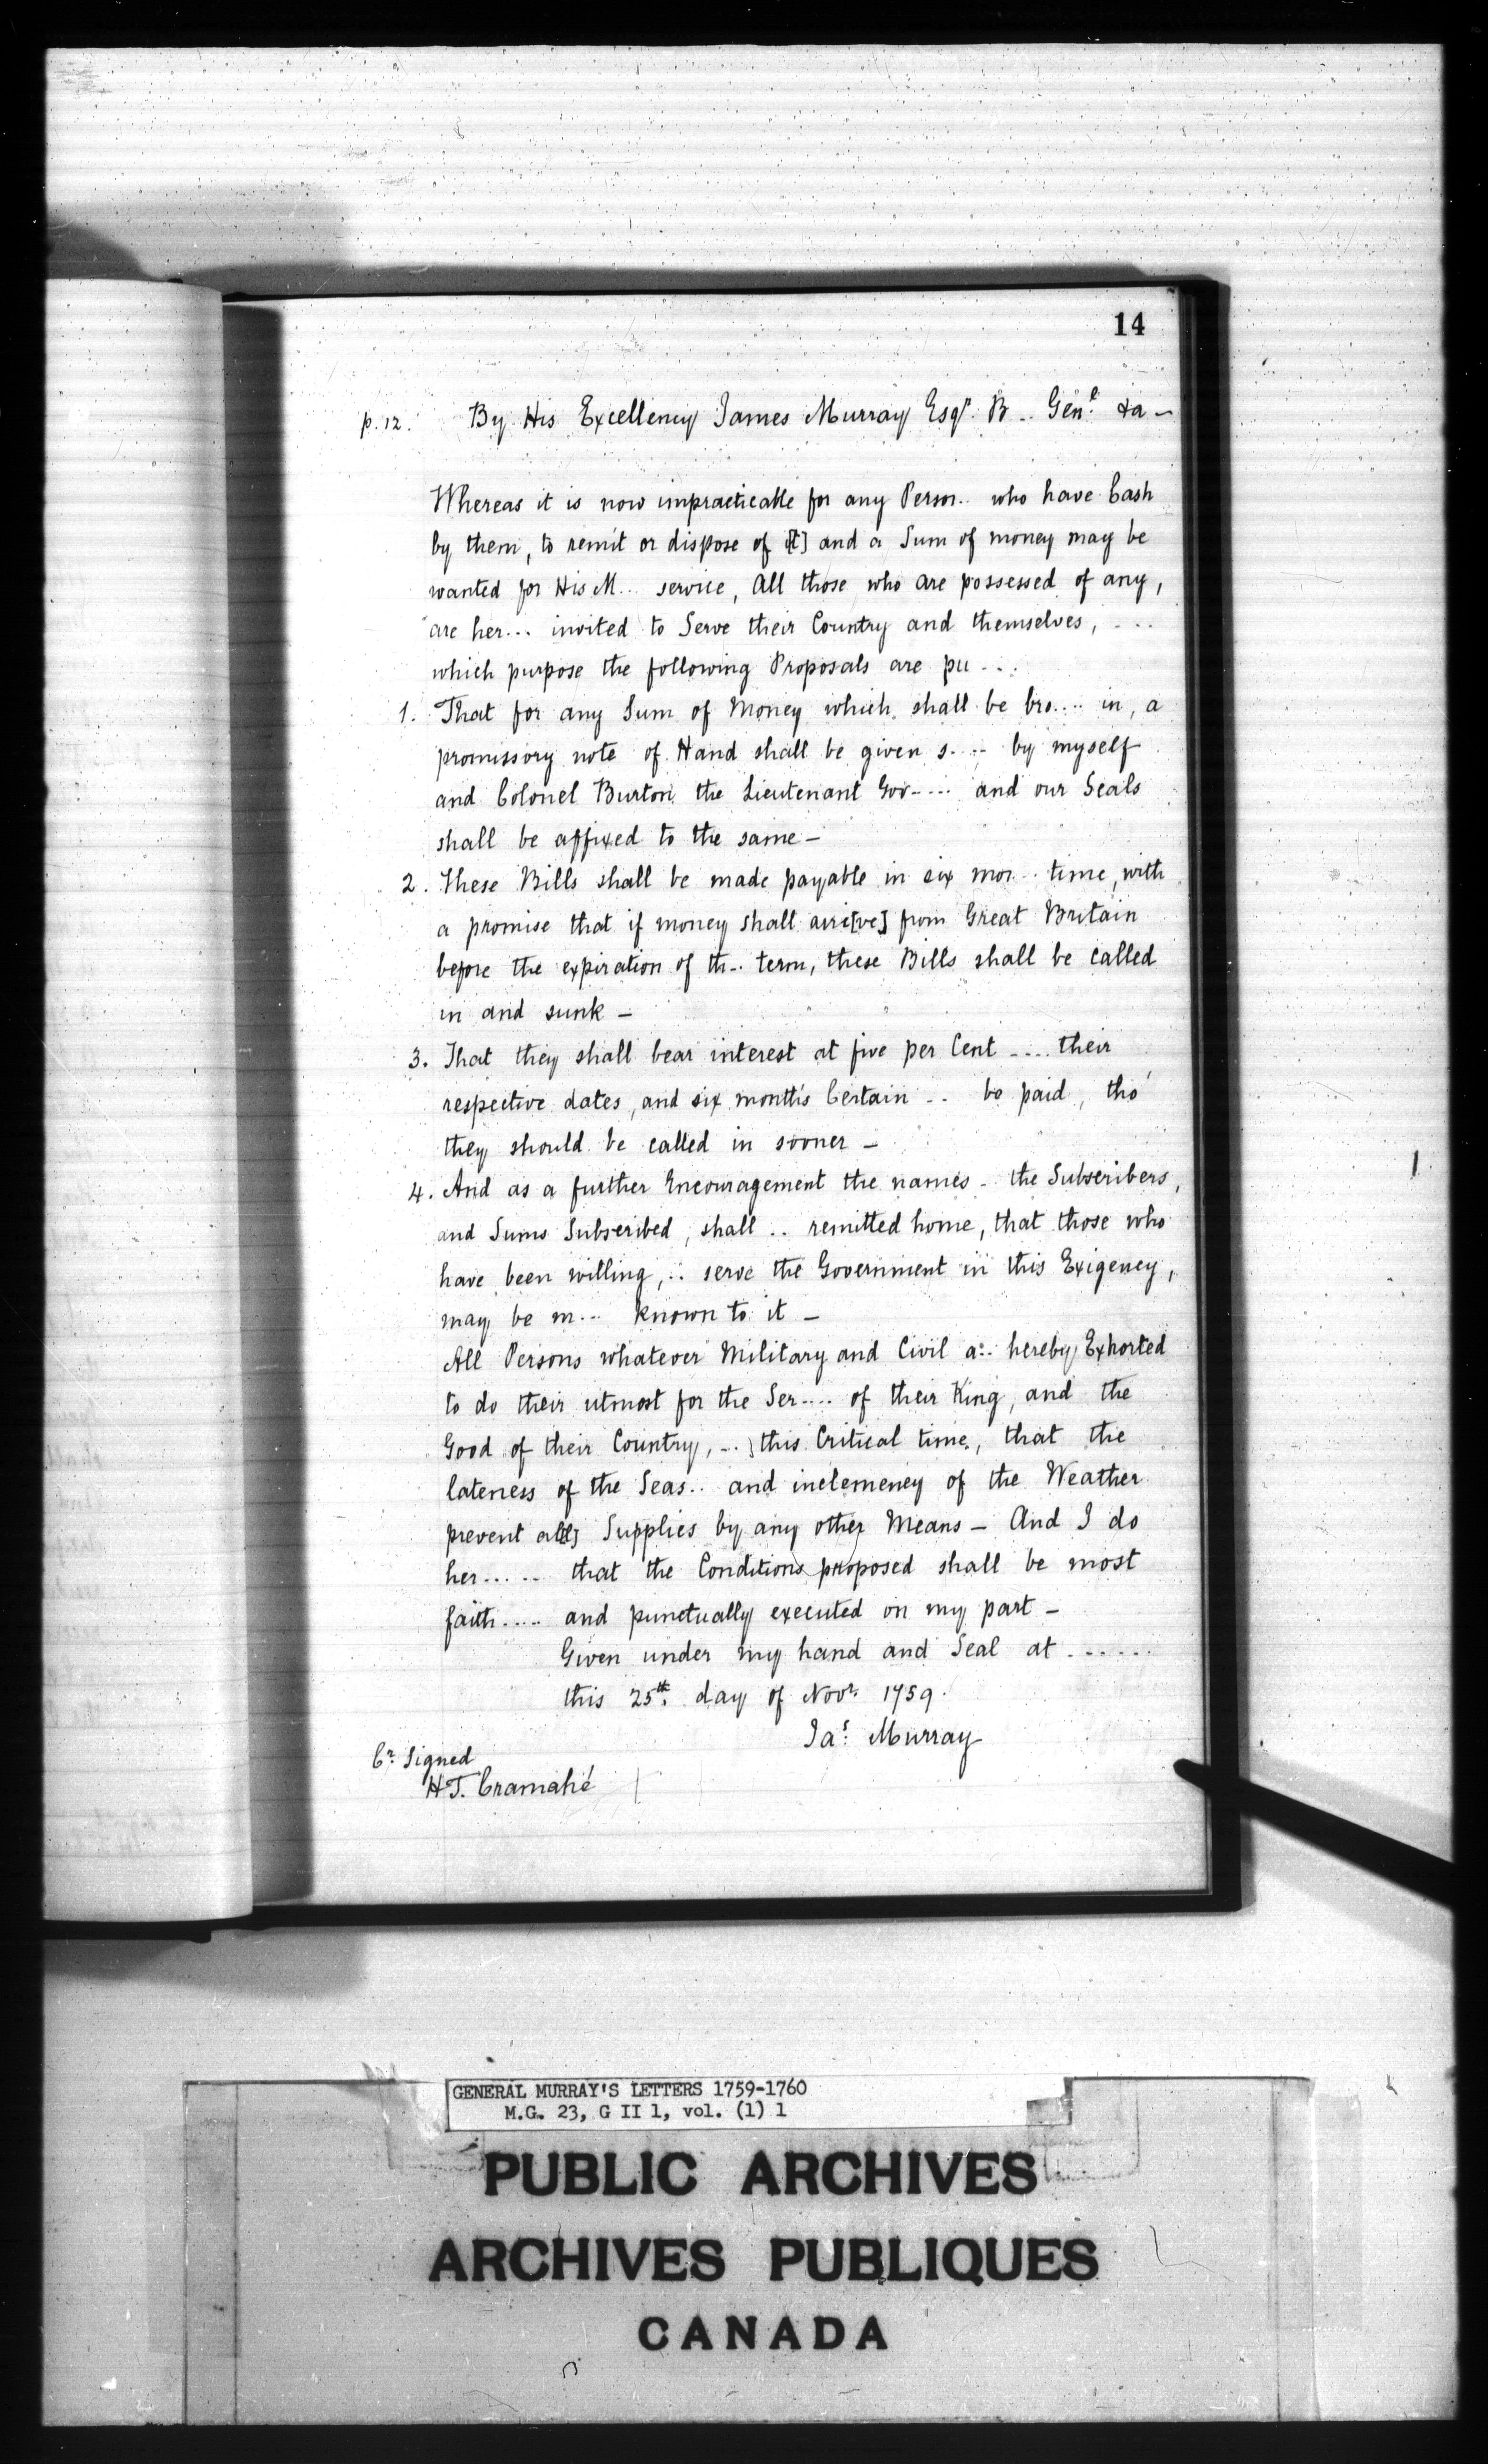 14
p. 12. By His Excellency James Murray Esqr. B .. Genl. &a —
Whereas it is now impracticable for any Person.. who have Cash
by them, to remit or dispose of i[t] and a Sum of money may be
wanted for His M... service, All those who are possessed of any,
are her... invited to Serve their Country and themselves, ....
which purpose the following Proposals are pu ...
1. That for any Sum of Money which shall be bro.... in, a
promissory note of Hand shall be given s.... by myself
and Colonel Burton the Lieutenant Gov..... and our Seals
shall be affixed to the same —
2. These Bills shall be made payable in six mon... time, with
a promise that if money shall arri[ve] from Great Britain
before the expiration of th.. term, these Bills shall be called
in and sunk —
3. That they shall bear interest at five per Cent .... their
respective dates, and six month's Certain .. be paid, tho'
they should be called in sooner —
4. And as a further Encouragement the names .. the Subscribers,
and Sums Subscribed, shall .. remitted home, that those who
have been willing, .. serve the Government in this Exigency,
may be m... known to it —
All Persons whatever Military and Civil a.. hereby Exhorted
to do their utmost for the Ser.... of their King, and the
Good of their Country, .. this Critical time, that the
lateness of the Seas.. and inclemency of the Weather
prevent al[l] Supplies by any other Means — And I do
her..... that the Conditions proposed shall be most
faith..... and punctually executed on my part —
Given under my hand and Seal at ......
this 25th. day of Novr. 1759.
Jas. Murray
Cr. Signed
H T. Cramahé
GENERAL MURRAY'S LETTERS 1759-1760
M.G. 23, G II 1, vol. (1) 1
PUBLIC ARCHIVES
ARCHIVES PUBLIQUES
CANADA